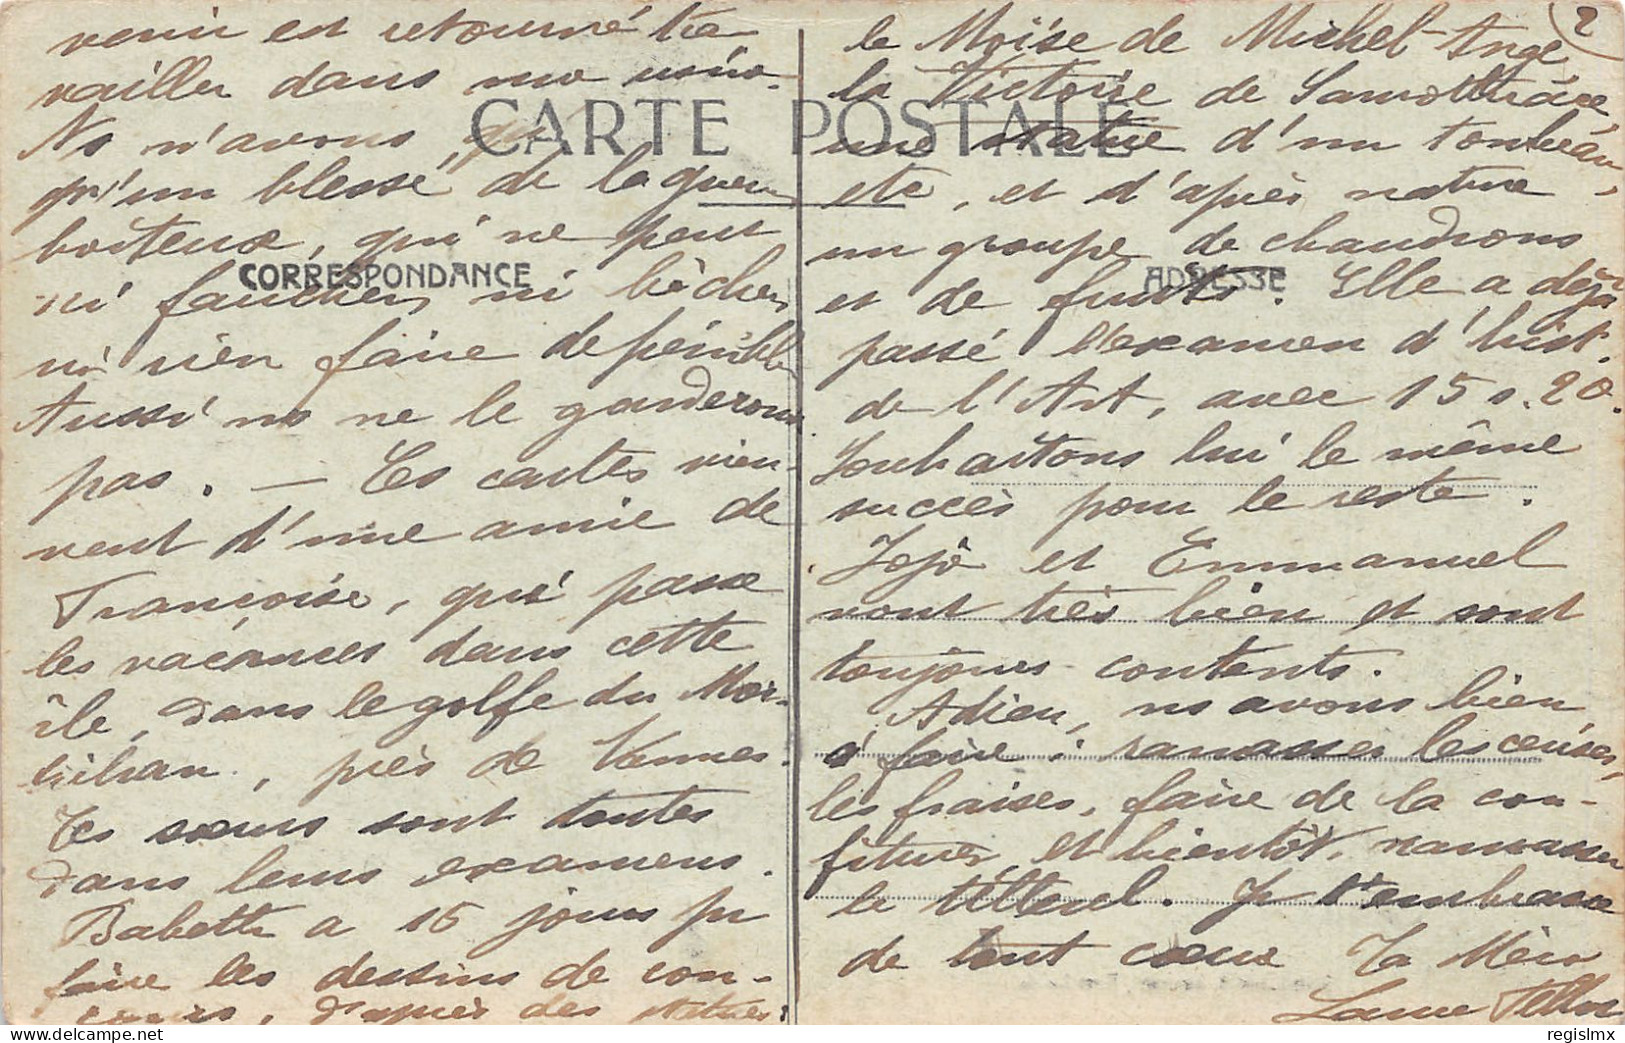 venir est retourné tra
vailler dans une usine.
Ns n'avons
qu'un "blessé" de la guerre
boiteux, qui ne peut
ni faucher, ni bêcher
ni rien faire de pénible
Aussi ns ne le garderons
pas. — Ces cartes vien-
nent d'une amie de
Françoise, qui passe
les vacances dans cette
île, dans le golfe du Mor-
bihan, près de Vannes.
Tes sœurs sont toutes
dans leurs examens.
Babette a 15 jours pr
faire les dessins de con-
cours, d'après des statues:
CARTE POSTALE
CORRESPONDANCE
ADRESSE
2
le Moïse de Michel-Ange
la Victoire de Samothrace,
une statue d'un tombeau,
etc, et d'après nature
un groupe de chaudrons
et de fruits. Elle a déjà
passé l'examen d'hist.
de l'Art, avec 15 s. 20.
Souhaitons lui le même
succès pour le reste.
Jojô et Emmanuel
vont très bien et sont
toujours contents.
Adieu, ns avons bien
à faire: ramasser les cerises,
les fraises, faire de la con-
fiture, et bientôt, ramasser
le tilleul. Je t'embrasse
de tout cœur Ta Mère
regislmx